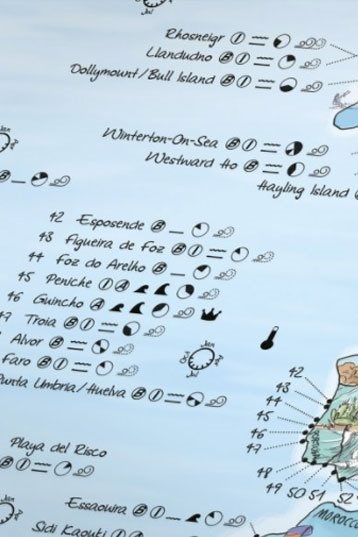 Jan
Jul
Rhosneigr B I
Llandudno B I
Dollymount/Bull Island B I
Jan
Winterton-On-Sea B I
Westward Ho B I
Hayling Island
B
42 Esposende B
43 Figueira de Foz B I
44 Foz do Arelho B
45 Peniche I A
46 Guincho A
47 Troia B I
Alvor B
Faro B I
Punta Umbria/Huelva B I
Jan
Jul
42
43
44
45
46
47
48
49 50 51 52
Playa del Risco
B I
Jan
Essaouira B I
Sidi Kaouki I
MOROCCO